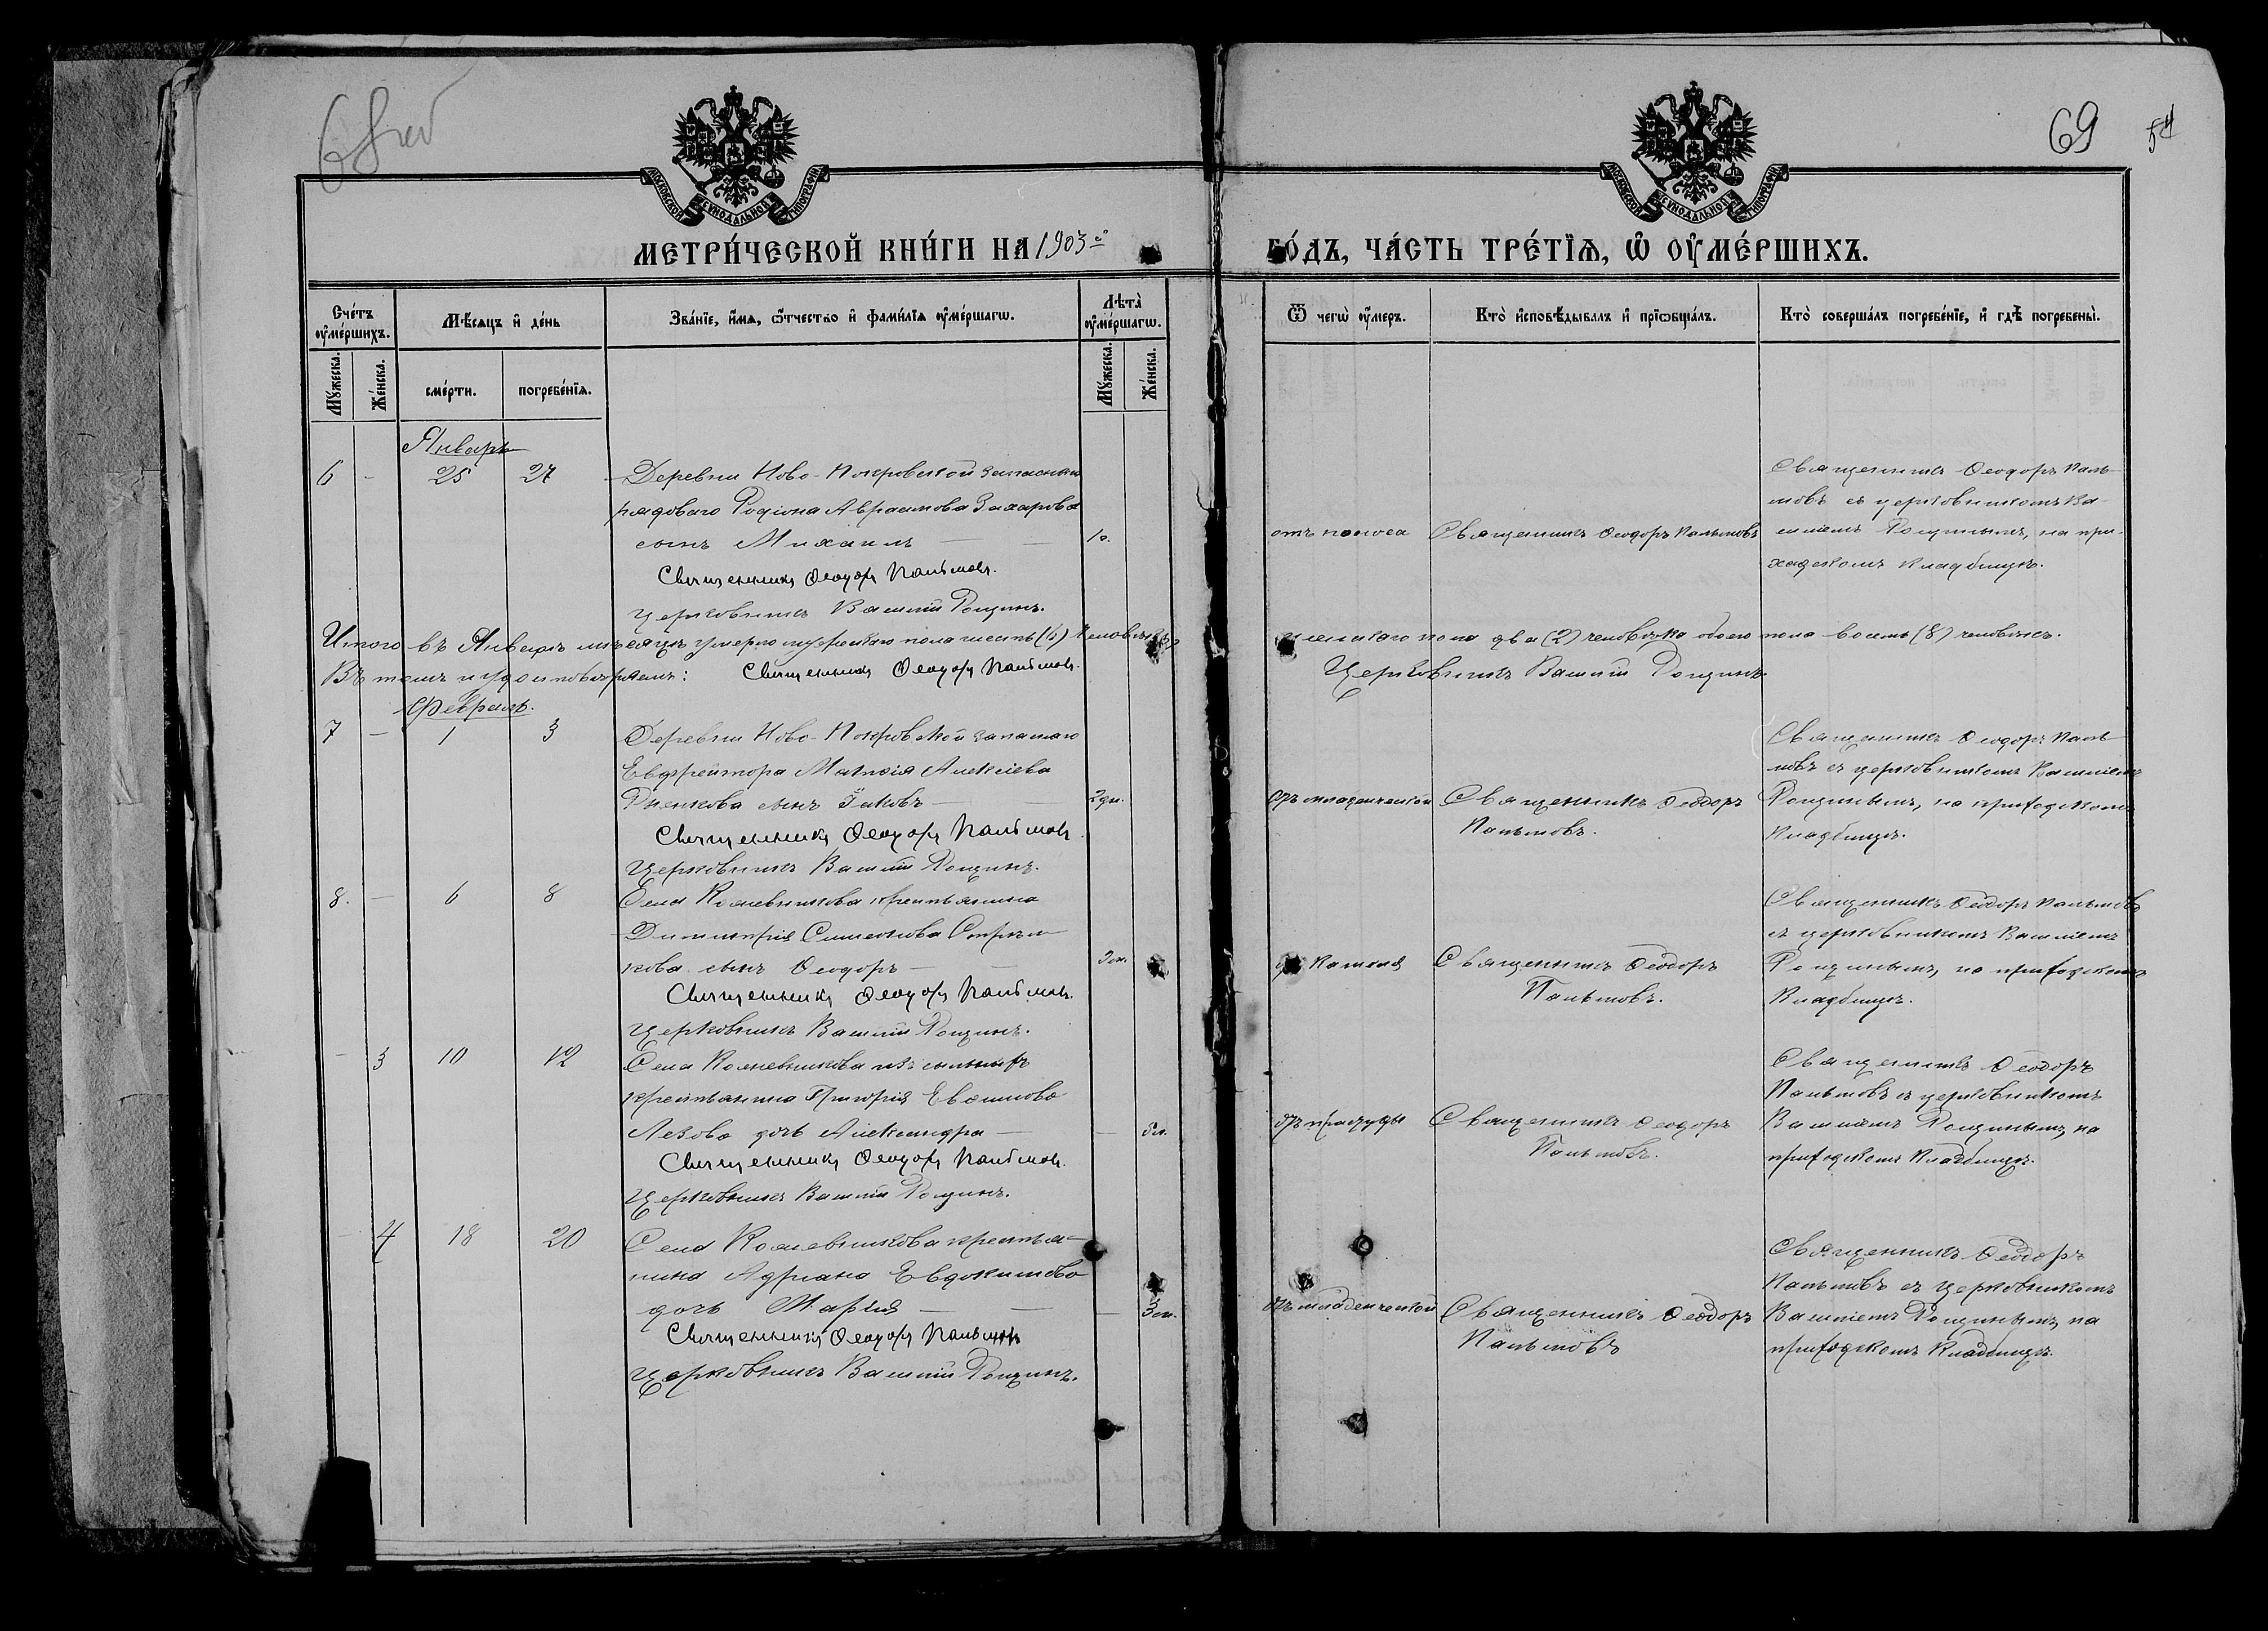 68 об
69
54
МОСКОВСКОЙ СѴНОДАЛЬНОЙ ТИПОГРАФІИ
МОСКОВСКОЙ СѴНОДАЛЬНОЙ ТИПОГРАФІИ
МЕТРИ́ЧЕСКОЙ КНИ́ГИ НА 1903й
ГО́ДЪ, ЧА́СТЬ ТРЕ́ТЇѦ, Ѡ҆ ОУ҆МЕ́РШИХЪ.
Сче́тъ оу҆ме́ршихъ.
Мѣ́сѧцъ и҆ де́нь
Зва́нїе, и҆́мѧ, ѻ҆́тчество и҆ фами́лїѧ оу҆ме́ршагѡ.
Лѣ̑та̀ оу҆ме́ршагѡ.
Ѿ чегѡ̀ оу҆́меръ.
Кто̀ и҆сповѣ́дывалъ и҆ прїѡбща́лъ.
Кто̀ соверша́лъ погребе́нїе, и҆ гдѣ̀ погребены̀.
Мꙋ́жеска.
Же́нска.
сме́рти.
погребе́нїѧ.
Мꙋ́жеска.
Же́нска.
Январь
6 - 25 27 Деревни Ново-Покровской запаснаго
рядоваго Родіона Авраамова Захарова
сынъ Михаилъ — — 1г.
Священникъ Ѳеодоръ Пальмовъ.
Церковникъ Василій Рощинъ.
отъ поноса
Священникъ Ѳеодоръ Пальмовъ
Священникъ Ѳеодоръ Паль-
мовъ съ церковникомъ Ва-
силіемъ Рощинымъ, на при-
ходскомъ кладбищѣ.
Итого въ Январѣ мѣсяцѣ умерло мужескаго пола шесть (6) человѣкъ
женскаго пола два (2) человѣка обоего пола восемь (8) человѣкъ.
Въ томъ и удостовѣряемъ: Священникъ Ѳеодоръ Пальмовъ.
Церковникъ Василій Рощинъ.
Февраль.
7 - 1 3 Деревни Ново-Покровской запаснаго
Евфрейтора Матѳія Алексіева
сынъ Іаковъ — — 2дн.
Священникъ Ѳеодоръ Пальмовъ.
Церковникъ Василій Рощинъ.
отъ младенческой
Священникъ Ѳеодоръ
Пальмовъ.
Священникъ Ѳеодоръ Паль-
мовъ съ церковникомъ Василіемъ
Рощинымъ, на приходскомъ
кладбищѣ.
8. - 6 8 Села Кожевникова крестьянина
Димитрія Симеонова Стрѣль-
кова сынъ Ѳеодоръ — —
Священникъ Ѳеодоръ Пальмовъ.
Церковникъ Василій Рощинъ.
отъ кашля
Священникъ Ѳеодоръ
Пальмовъ.
Священникъ Ѳеодоръ Пальмовъ
съ церковникомъ Василіемъ
Рощинымъ, на приходскомъ
кладбищѣ.
- 3 10 12 Села Кожевникова изъ ссыльныхъ
крестьянина Григорія
Лезова дочь Александра —
Священникъ Ѳеодоръ Пальмовъ.
Церковникъ Василій Рощинъ.
отъ простуды
Священникъ Ѳеодоръ
Пальмовъ.
Священникъ Ѳеодоръ
Пальмовъ съ церковникомъ
Василіемъ Рощинымъ, на
приходскомъ кладбищѣ.
- 4 18 20 Села Кожевникова крестья-
нина Адриана Евдокимова
дочь Марія — —
Священникъ Ѳеодоръ Пальмовъ
Церковникъ Василій Рощинъ.
отъ младенческой
Священникъ Ѳеодоръ
Пальмовъ
Священникъ Ѳеодоръ
Пальмовъ съ церковникомъ
Василіемъ Рощинымъ, на
приходскомъ кладбищѣ.